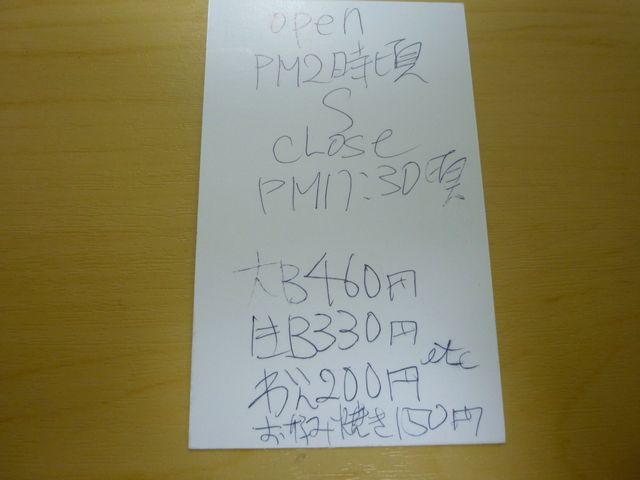 open
PM2時頃
S
cLose
PM17:30頃
大B460円
B330円
etc
200円
お好み焼き150円